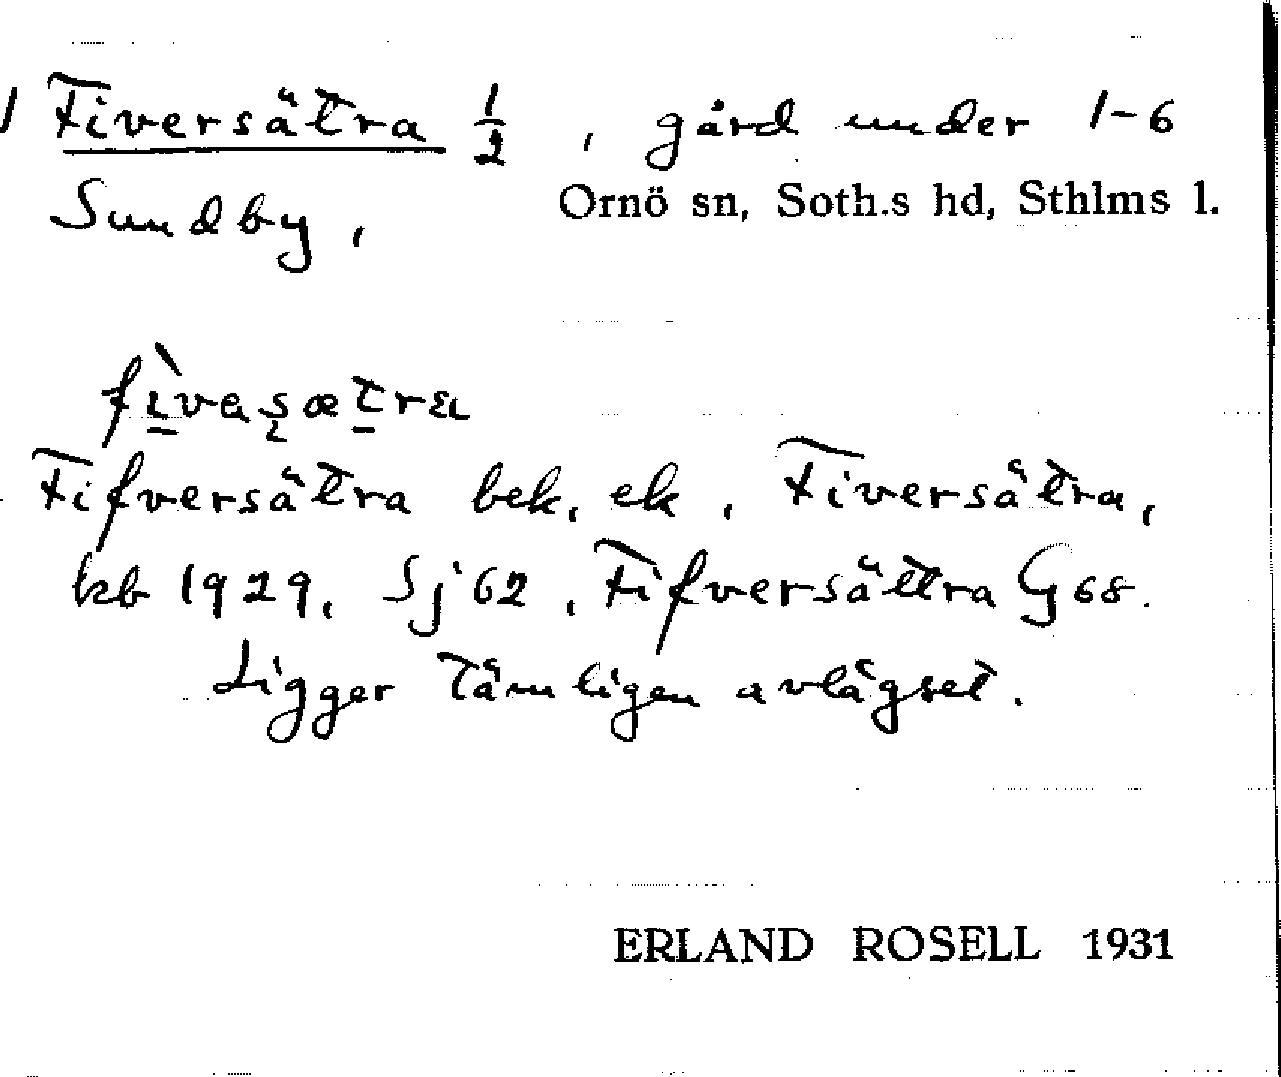 Fiversätra 1/2, gård under 1-6
Sundby, Ornö sn, Soth.s hd, Sthlms l.
Fifversätra bek, ek, Fiversätra,
kb 1929, Sj 62, Fifversättra G 68.
Ligger tämligen avlägset.
ERLAND ROSELL 1931